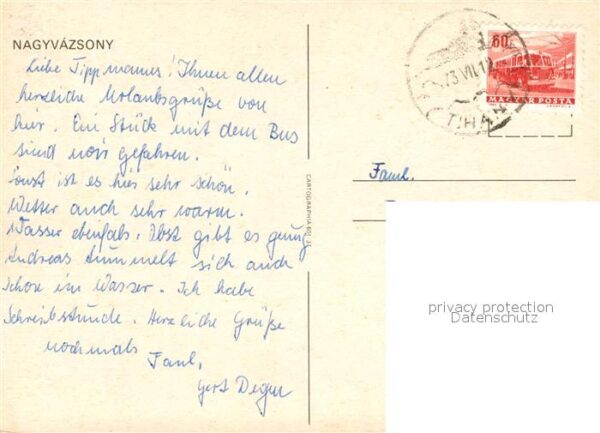 NAGYVÁZSONY
Liebe Tippmanns! Ihnen allen
herzliche Urlaubsgrüße von
hier. Ein Stück mit dem Bus
sind wir gefahren.
Sonst ist es hier sehr schön.
Wetter auch sehr warm.
Wasser ebenfals. Obst gibt es genug
Andreas tummelt sich auch
schon im Wasser. Ich habe
Schreibstunde. Herzliche Grüße
nochmals
Faml.
Gert
CARTOGRAPHIA
60
73.VII.12
MAGYAR POSTA
TIHANY
Faml.
privacy protection
Datenschutz